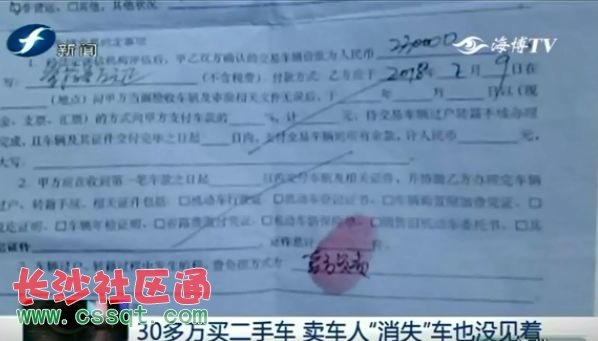 与非营运、□其他、其他状况
新闻
海博TV
1. 经过定评估机构评估后，甲乙双方确认的交易车辆价款为人民币 230000
写： （不含税费）。付款方式 乙方应于 2018年 2月 9日在
（地点）向甲方当面验收车辆及审验相关文件无误后，于 年 月 日以（现
金、支票、汇票）的方式向甲方支付车款的 %，计 元，待交易车辆过户转籍手续办理
完成，且车辆及其证件交付完毕之日起 日内，支付交易车辆的所有余款，计人民币 元，
大写：
2. 甲方应在收到第一笔车款之日起 日内交付车辆及相关证件，并协助乙方办理完车辆
过户、转籍手续。相关证件包括：□机动车行驶证、□机动车登记证书、□车辆购置附加费凭证、
□车辆年检证明、□养路费缴付凭证、
□机动车委托书、□其
长沙社区通
www.cssqt.com
30多万买二手车 卖车人“消失”车也没见着